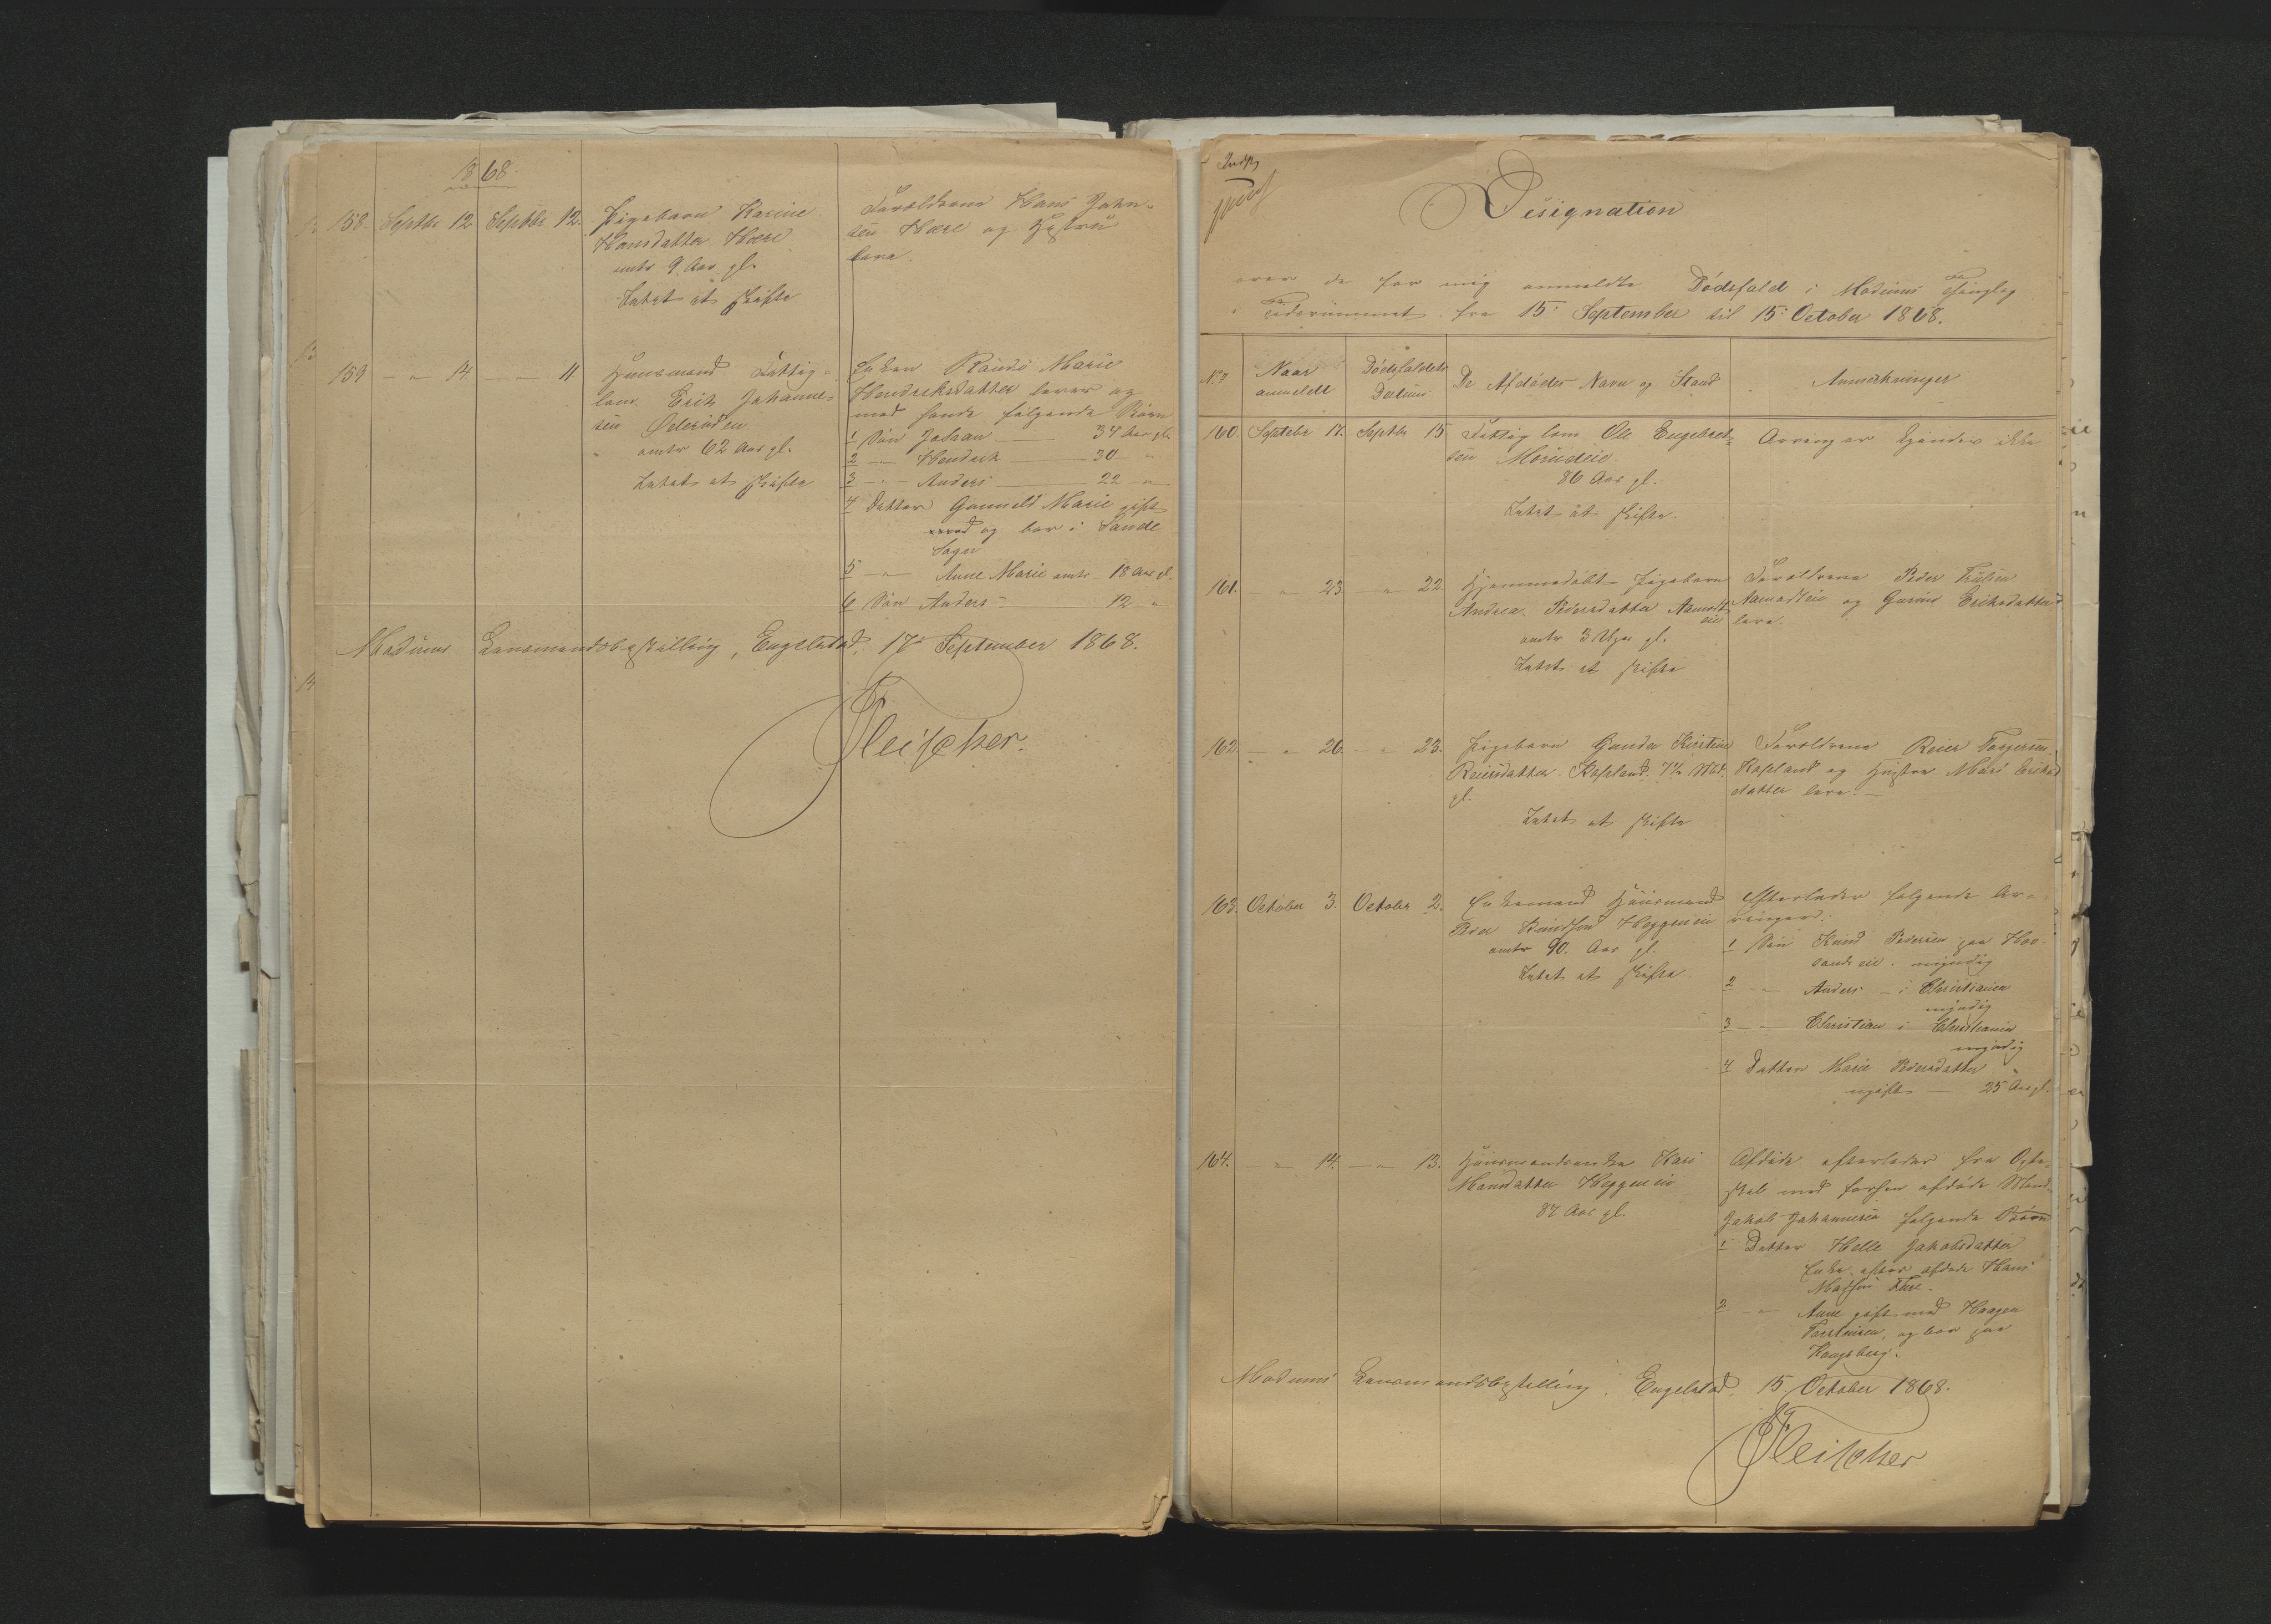 1868.
158. Septbr 12. Septbr 12. Pigebarn Karine
Hansdatter Hære
omtr 9 Aar gl.
Intet at skifte
Forældrene Hans Johan-
sen Hære og Hustru
leve.
159 — " 14. — " 11 Huusmand Fattig-
lem Erik Johanne-
sen
omtr 62 Aar gl.
Intet at skifte
Enken Randi Marie
Hendriksdatter lever og
med hende følgende Børn
1 Søn Johan — 34 Aar gl.
2 — Hendrik — 30 "
3 — " Anders — 22 "
4 Datter Gunnild Marie gift
med og bor i Sande
Sogn
5 — " Anne Marie omtr 18 Aar gl.
6 Søn Anders — 12 "
Modums Lensmandsbestilling, Engelstad, 17 September 1868.
Fleischer.
Designation
over de for mig anmeldte Dødsfald i Modums Thinglag
i Tidsrummet fra 15 September til 15 October 1868.
No
Naar
anmeldt
Dødsfaldets
Datum
De Afdødes Navn og Stand
Anmærkninger
160. Septebr 17. Septbr 15 Fattiglem Ole Engebret-
sen Moeneie
86 Aar gl.
Intet at skifte.
Arvinger kjendes ikke
161. — " 23. — " 22 Hjemmedøbt Pigebarn
Andrea Pedersdatter Aamodt-
eie
omtr 3 Uger gl.
Intet at skifte
Forældrene Peder
Aamodteie og Gurine Eriksdatter
leve.
162. — " 26. — " 23. Pigebarn Gunda Kirstine
Reiersdatter Kopland 7½ Md.
gl.
Intet at skifte
Forældrene Reier Torgersen
Kopland og Hustru Mari Eriks-
datter leve. —
163. October 3. October 2. Enkemand Huusmand
Peder Knudsen Heggeneie
omtr 90 Aar gl.
Intet at skifte
Efterlader følgende Ar-
vinger:
1 Søn Knud Pedersen paa Hov-
landseie. myndig
2 — Anders — i Christiania
myndig
3 — " Christian i Christiania
myndig
4 Datter Marie Pedersdatter
ugift — 25 Aar gl.
164. — " 14. — " 13. Huusmandsenke Kari
Hansdatter Heggeneie
87 Aar gl.
Afdøde efterlader fra Ægte-
skab med forhen afdøde Mand
Jakob Johannesen følgende Børn
1 Datter Helle Jakobsdatter
Enke efter afdøde Hans
Madsen Fure.
2 — " Anne gift med Haagen
Torstensen, og bor paa
Kongsberg.
Modums Lensmandsbestilling, Engelstad 15 October 1868.
Fleischer